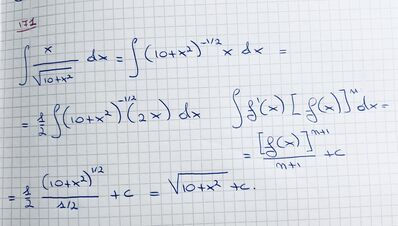 171
∫ x/√(10+x²) dx = ∫(10+x²)^(-1/2) x dx =
= 1/2 ∫(10+x²)^(-1/2) (2x) dx   ∫f'(x) [f(x)]^n dx =
= [f(x)]^(n+1)/(n+1) + c
= 1/2 (10+x²)^(1/2)/(1/2) + c = √(10+x²) + c.